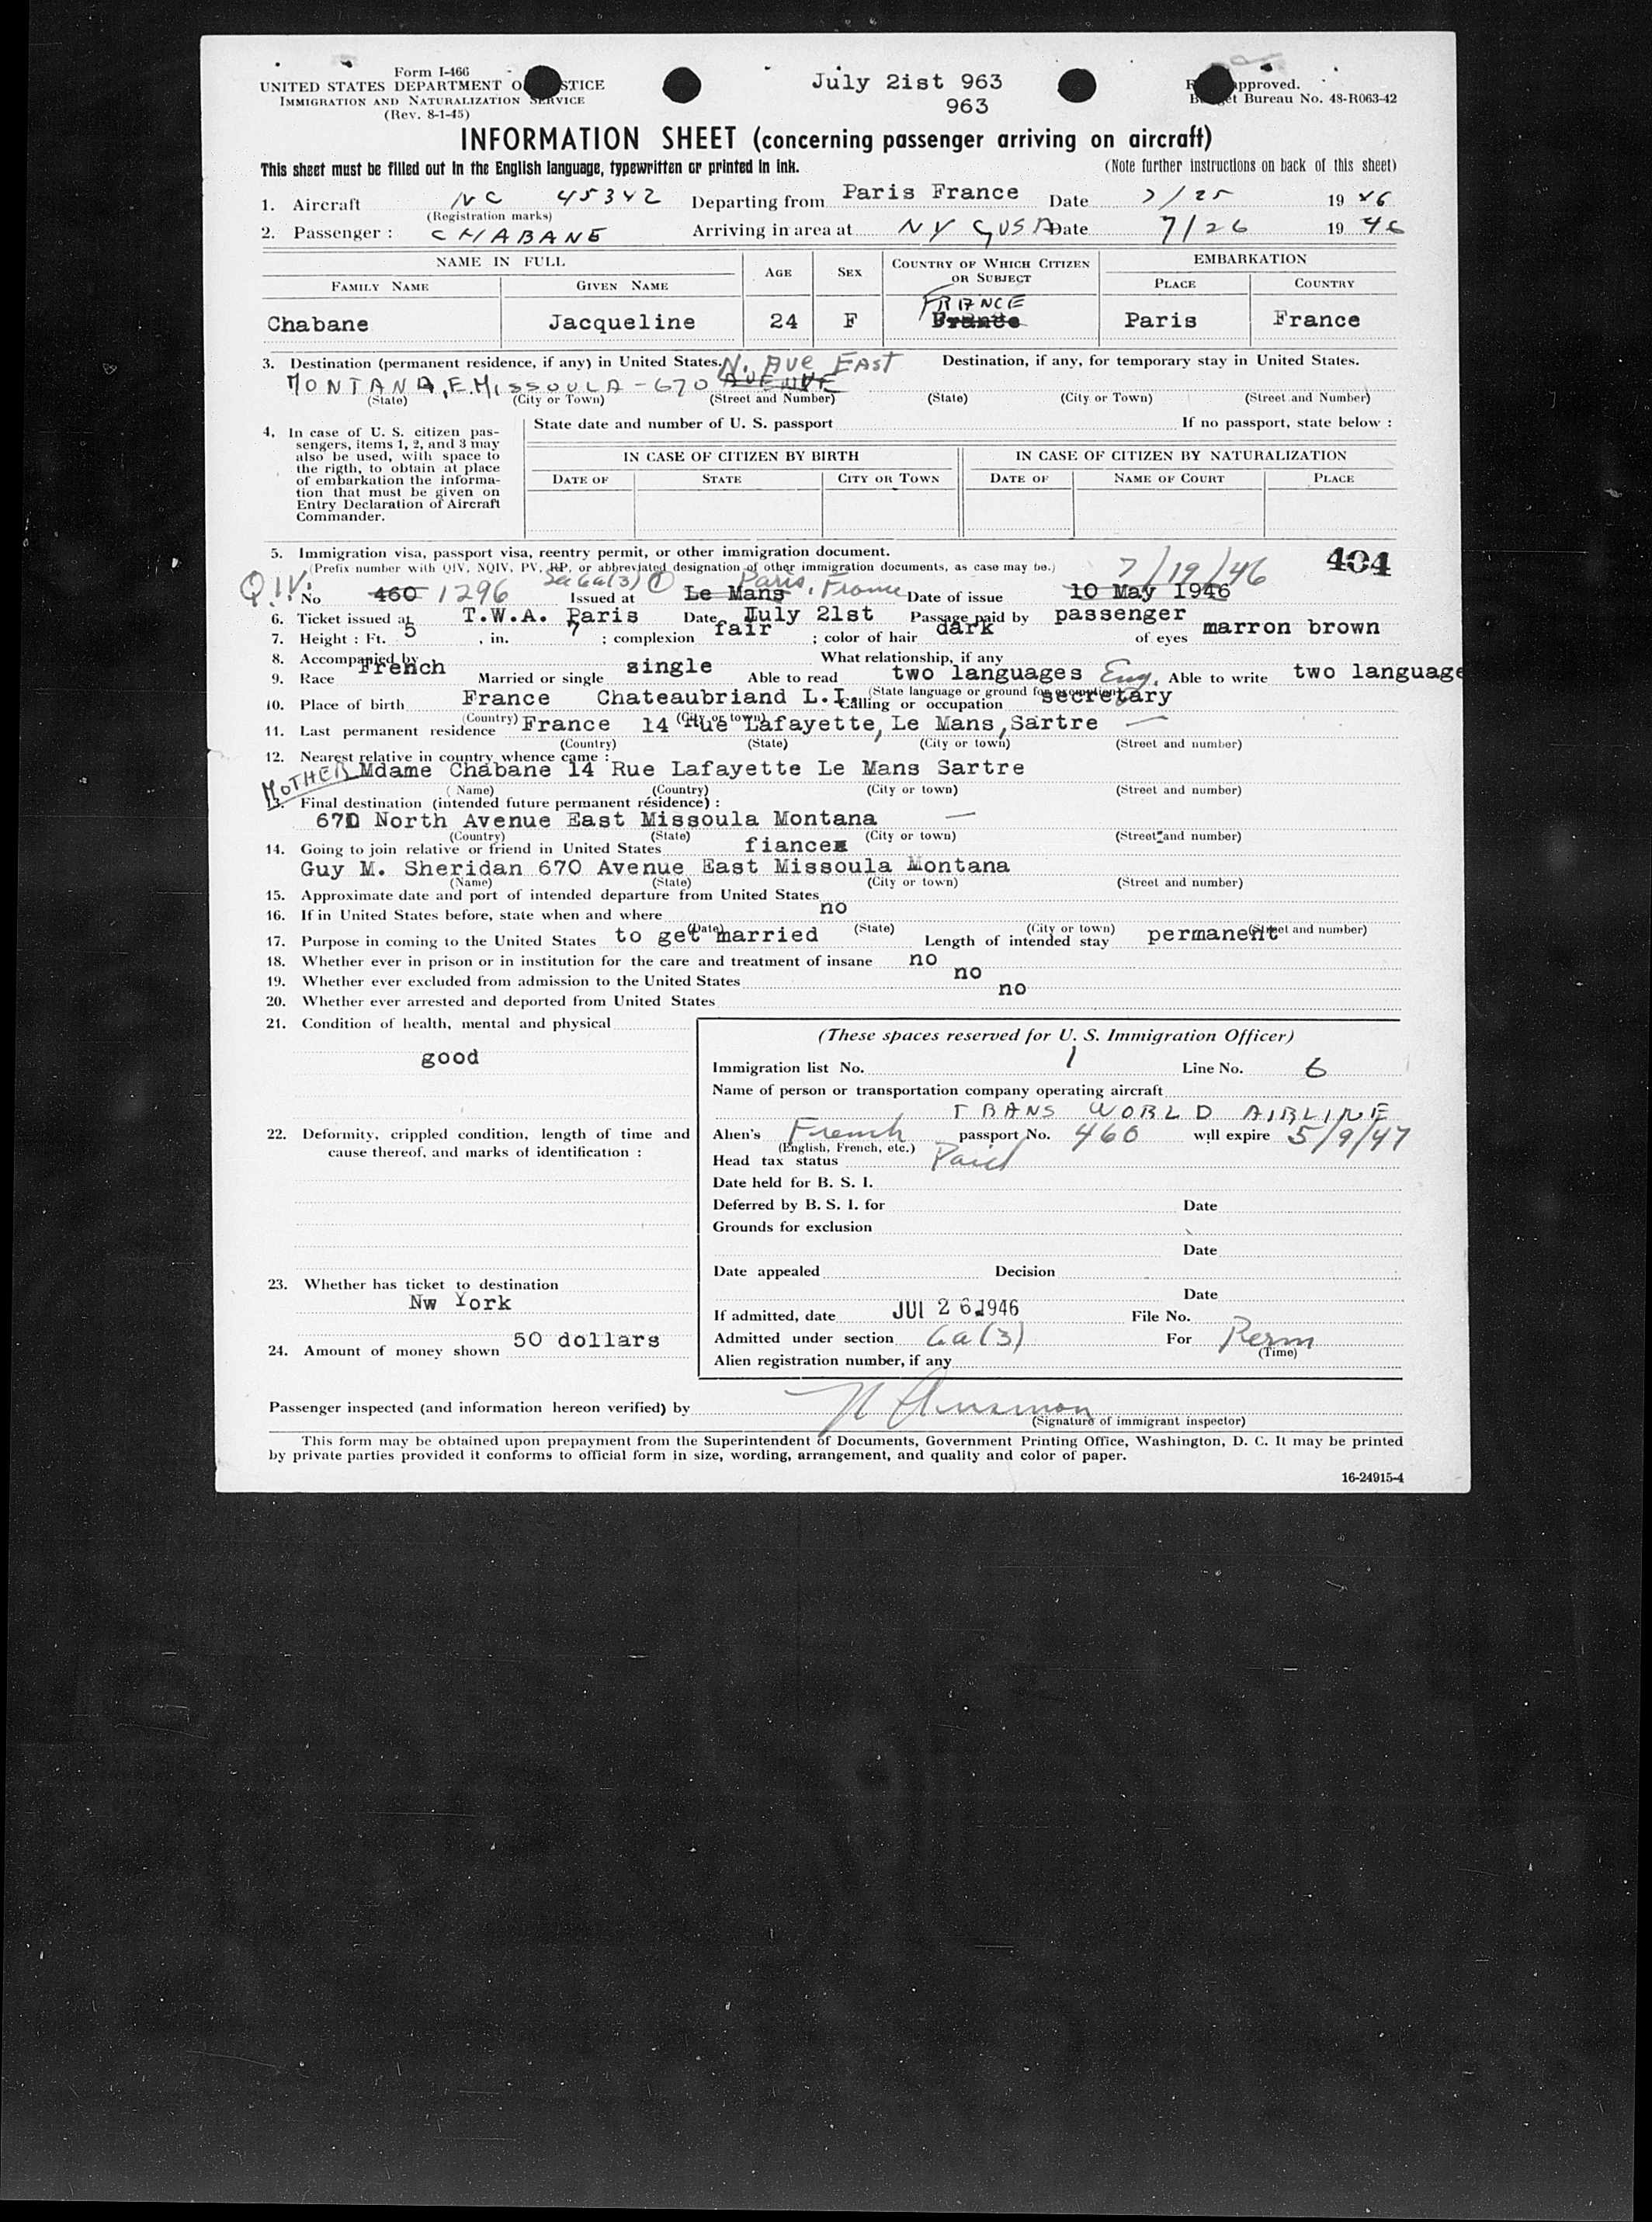 Form I-466
UNITED STATES DEPARTMENT O STICE
IMMIGRATION AND NATURALIZATION SERVICE
(Rev. 8-1-45)
July 2ist 963
963
approved.
Bureau No. 48-R063-42
INFORMATION SHEET (concerning passenger arriving on aircraft)
This sheet must be filled out in the English language, typewritten or printed in ink. (Note further instructions on back of this sheet)
1. Aircraft NC 45342 Departing from Paris France Date 7/25 19 46
(Registration marks)
2. Passenger : CHABANE Arriving in area at NY Date 7/26 19 46
NAME IN FULL AGE SEX COUNTRY OF WHICH CITIZEN OR SUBJECT EMBARKATION
FAMILY NAME GIVEN NAME PLACE COUNTRY
FRANCE
Chabane Jacqueline 24 F France Paris France
3. Destination (permanent residence, if any) in United States. N. Ave EAST Destination, if any, for temporary stay in United States.
MONTANA, E. MISSOULA - 670 AVENUE
(State) (City or Town) (Street and Number) (State) (City or Town) (Street and Number)
4. In case of U. S. citizen passengers, items 1, 2, and 3 may also be used, with space to the rigth, to obtain at place of embarkation the information that must be given on Entry Declaration of Aircraft Commander.
State date and number of U. S. passport If no passport, state below :
IN CASE OF CITIZEN BY BIRTH IN CASE OF CITIZEN BY NATURALIZATION
DATE OF STATE CITY OR TOWN DATE OF NAME OF COURT PLACE
5. Immigration visa, passport visa, reentry permit, or other immigration document.
(Prefix number with QIV, NQIV, PV, RP, or abbreviated designation of other immigration documents, as case may be.) 7/19/46 404
Q.I.V. 6a(3) Paris, France
No 460 1296 Issued at Le Mans Date of issue 10 May 1946
6. Ticket issued at T.W.A. Paris Date July 21st Passage paid by passenger
7. Height : Ft. 5 , in. 7 ; complexion fair ; color of hair dark of eyes marron brown
8. Accompanied by What relationship, if any
9. Race French Married or single single Able to read two languages Eng. Able to write two language
(State language or ground for exemption)
10. Place of birth France Chateaubriand L.I. Calling or occupation secretary
(Country) (City or town)
11. Last permanent residence France 14 Rue Lafayette, Le Mans, Sartre
(Country) (State) (City or town) (Street and number)
12. Nearest relative in country whence came :
MOTHER Mdame Chabane 14 Rue Lafayette Le Mans Sartre
(Name) (Country) (City or town) (Street and number)
13. Final destination (intended future permanent résidence) :
670 North Avenue East Missoula Montana
(Country) (State) (City or town) (Street and number)
14. Going to join relative or friend in United States fiance
Guy M. Sheridan 670 Avenue East Missoula Montana
(Name) (State) (City or town) (Street and number)
15. Approximate date and port of intended departure from United States
16. If in United States before, state when and where no
(Date) (State) (City or town) (Street and number)
17. Purpose in coming to the United States to get married Length of intended stay permanent
18. Whether ever in prison or in institution for the care and treatment of insane no
19. Whether ever excluded from admission to the United States no
20. Whether ever arrested and deported from United States no
21. Condition of health, mental and physical
good
22. Deformity, crippled condition, length of time and cause thereof, and marks of identification :
23. Whether has ticket to destination
Nw York
24. Amount of money shown 50 dollars
(These spaces reserved for U. S. Immigration Officer)
Immigration list No. 1 Line No. 6
Name of person or transportation company operating aircraft
TRANS WORLD AIRLINE
Alien's French passport No. 460 will expire 5/9/47
(English, French, etc.)
Head tax status Paid
Date held for B. S. I.
Deferred by B. S. I. for Date
Grounds for exclusion
Date
Date appealed Decision
Date
If admitted, date JUL 26 1946 File No.
Admitted under section 6a(3) For Perm
(Time)
Alien registration number, if any
Passenger inspected (and information hereon verified) by
(Signature of immigrant inspector)
This form may be obtained upon prepayment from the Superintendent of Documents, Government Printing Office, Washington, D. C. It may be printed
by private parties provided it conforms to official form in size, wording, arrangement, and quality and color of paper.
16-24915-4